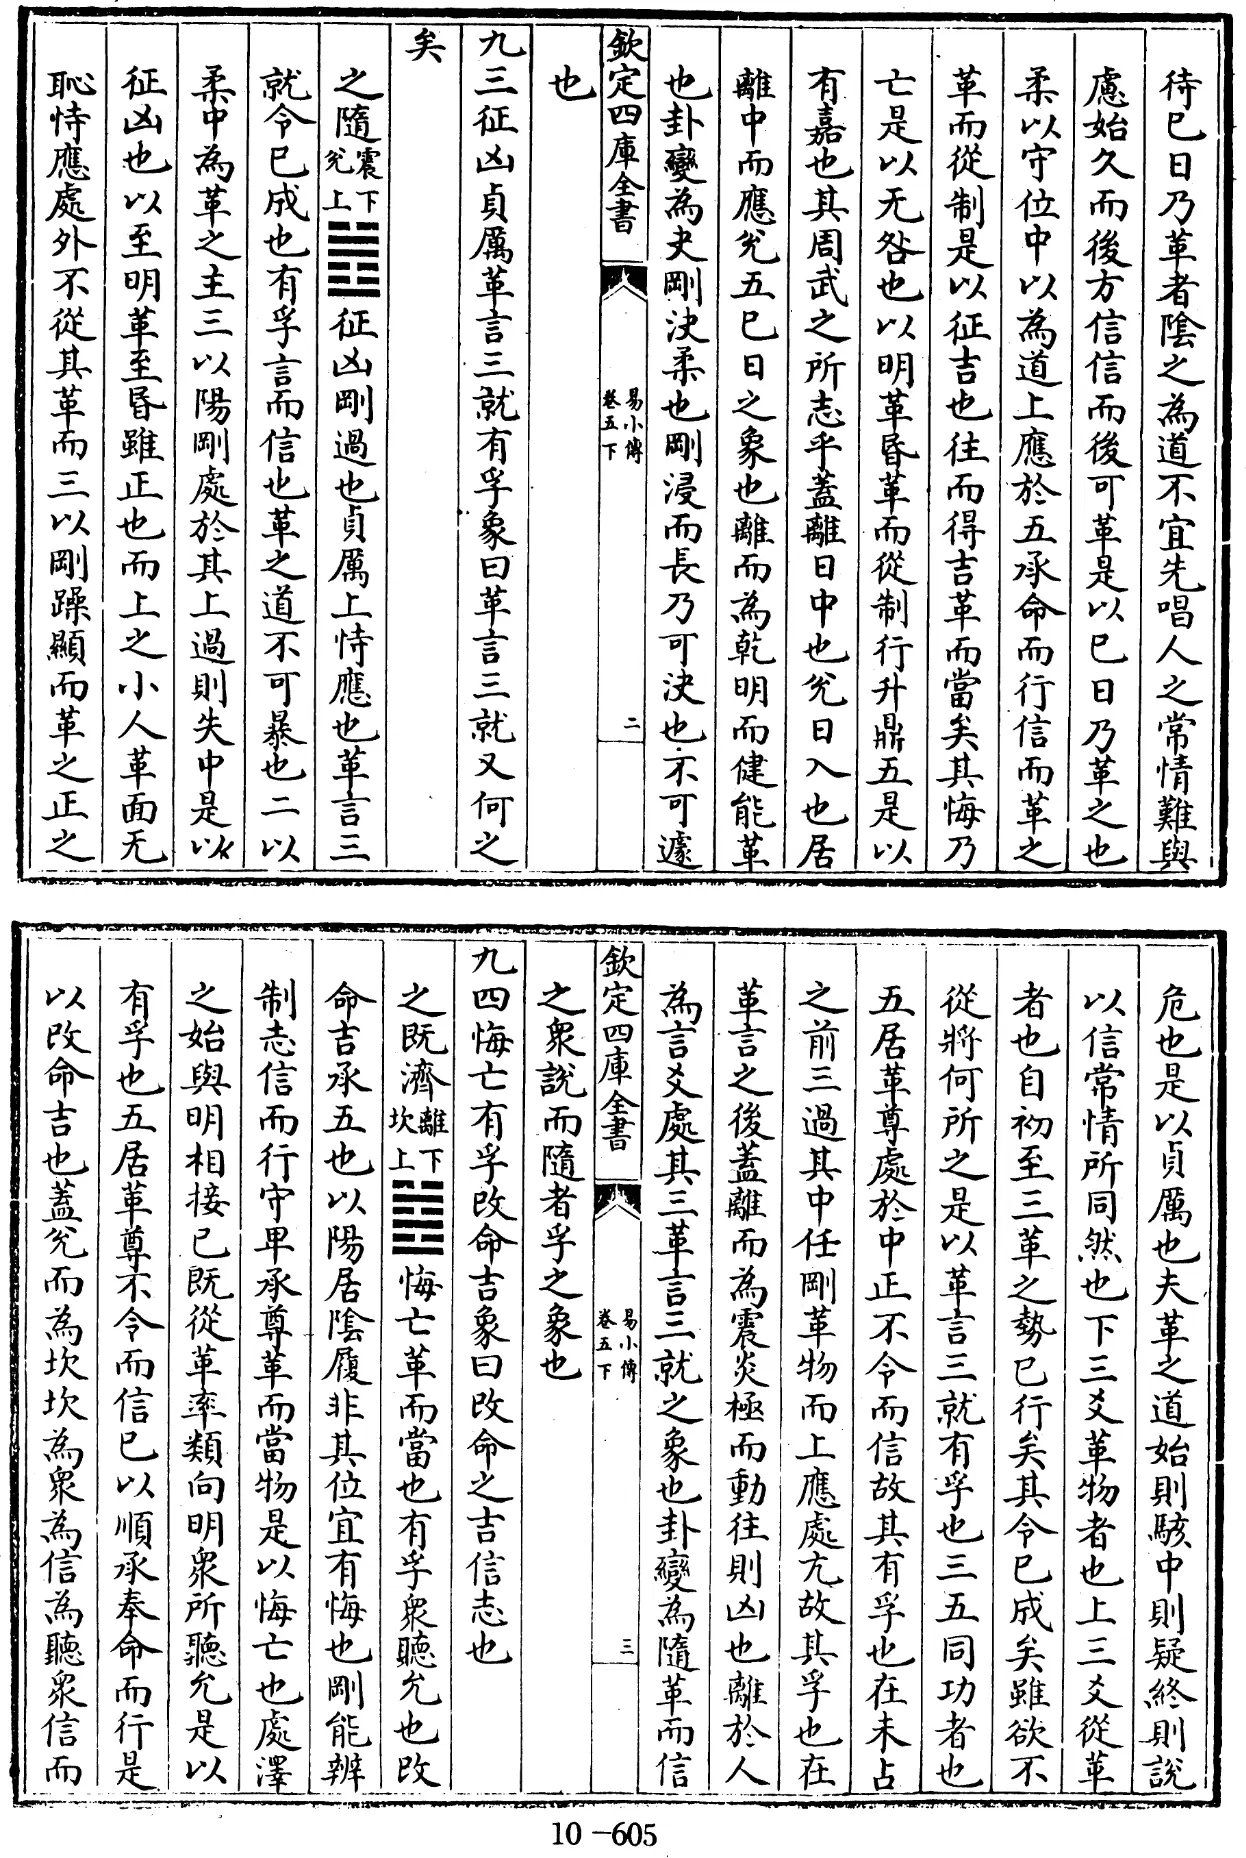 待已日乃革者陰之為道不宜先唱人之常情難與
慮始久而後方信信而後可革是以已日乃革之也
柔以守位中以為道上應於五承命而行信而革之
革而從制是以征吉也往而得吉革而當矣其悔乃
亡是以无咎也以明革昏革而從制行升鼎五是以
有嘉也其周武之所志乎蓋離日中也兊日入也居
離中而應兊五已日之象也離而為乾明而健能革
也卦變為夬剛決柔也剛浸而長乃可決也不可遽
也
欽定四庫全書
易小傳
卷五下
二
九三征凶貞厲革言三就有孚象曰革言三就又何之
矣
之隨震下兊上䷐征凶剛過也貞厲上恃應也革言三
就令已成也有孚言而信也革之道不可暴也二以
柔中為革之主三以陽剛處於其上過則失中是以
征凶也以至明革至昏雖正也而上之小人革面无
恥恃應處外不從其革而三以剛躁顯而革之正之
危也是以貞厲也夫革之道始則駭中則疑終則說
以信常情所同然也下三爻革物者也上三爻從革
者也自初至三革之勢已行矣其令已成矣雖欲不
從將何所之是以革言三就有孚也三五同功者也
五居革尊處於中正不令而信故其有孚也在未占
之前三過其中任剛革物而上應處亢故其孚也在
革言之後蓋離而為震炎極而動往則凶也離於人
為言爻處其三革言三就之象也卦變為隨革而信
之衆說而隨者孚之象也
欽定四庫全書
易小傳
卷五下
三
九四悔亡有孚改命吉象曰改命之吉信志也
之既濟離下坎上䷾悔亡革而當也有孚衆聽允也改
命吉承五也以陽居陰履非其位宜有悔也剛能辨
制志信而行守卑承尊革而當物是以悔亡也處澤
之始與明相接已既從革率類向明衆所聽允是以
有孚也五居革尊不令而信已以順承奉命而行是
以改命吉也蓋兊而為坎坎為衆為信為聽衆信而
10-605